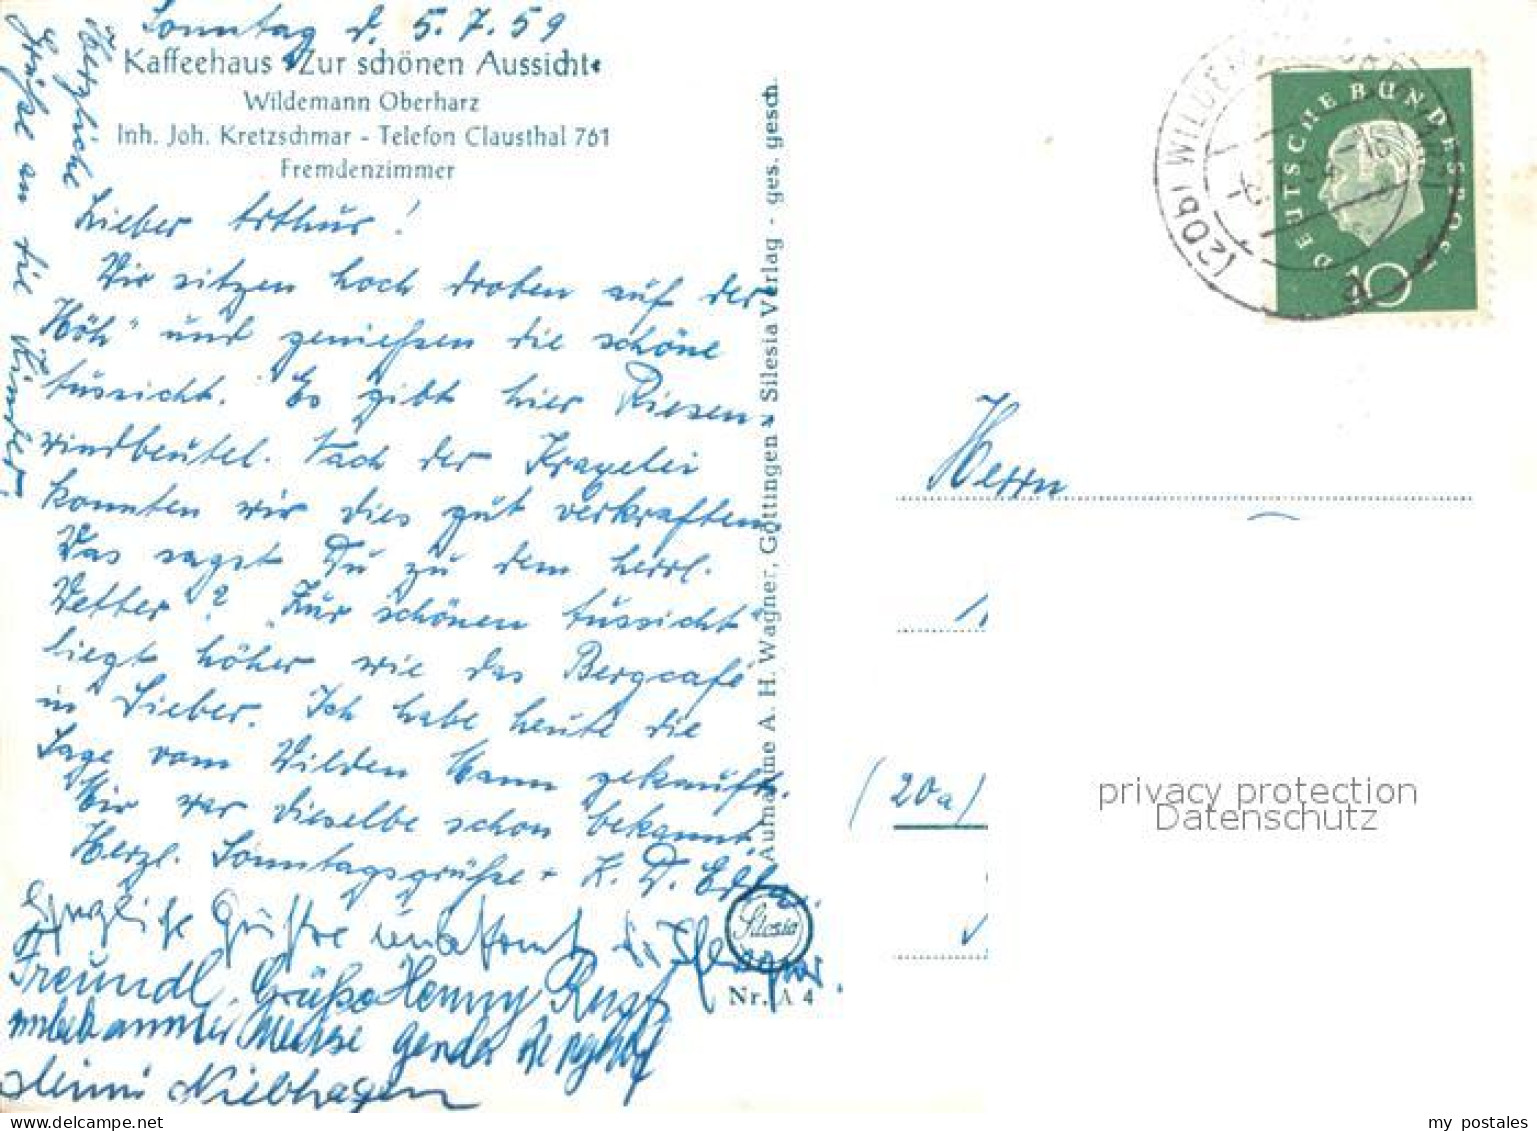 Sonntag d. 5.7.59
Kaffeehaus „Zur schönen Aussicht“
Wildemann Oberharz
Inh. Joh. Kretzschmar - Telefon Clausthal 761
Fremdenzimmer
Lieber Arthur!
Wir sitzen hoch droben auf der
Höh" und geniessen die schöne
Aussicht. Es gibt hier Riesen-
windbeutel. Nach der Kraxelei
konnten wir dies gut verkraften.
Was sagst Du zu dem herrl.
Wetter? "Zur schönen Aussicht"
liegt höher wie das Bergcafé
in Sieber. Ich habe heute die
Sage vom Wilden Mann gekauft.
Mir war dieselbe schon bekannt.
Herzl. Sonntagsgrüsse + L. D.
Herzliche Grüsse unbekannt
Freundl. Grüße Henny
unbekannter Weise
Minni Niebhagen
Herzliche
Grüsse an die Kinder.
Aufnahme A. H. Wagner, Göttingen - Silesia Verlag - ges. gesch.
Silesia
Nr. A 4
DEUTSCHE BUNDESPOST
10
(20b) WILDEMANN
a
Herrn
(20a)
privacy protection
Datenschutz
my postales